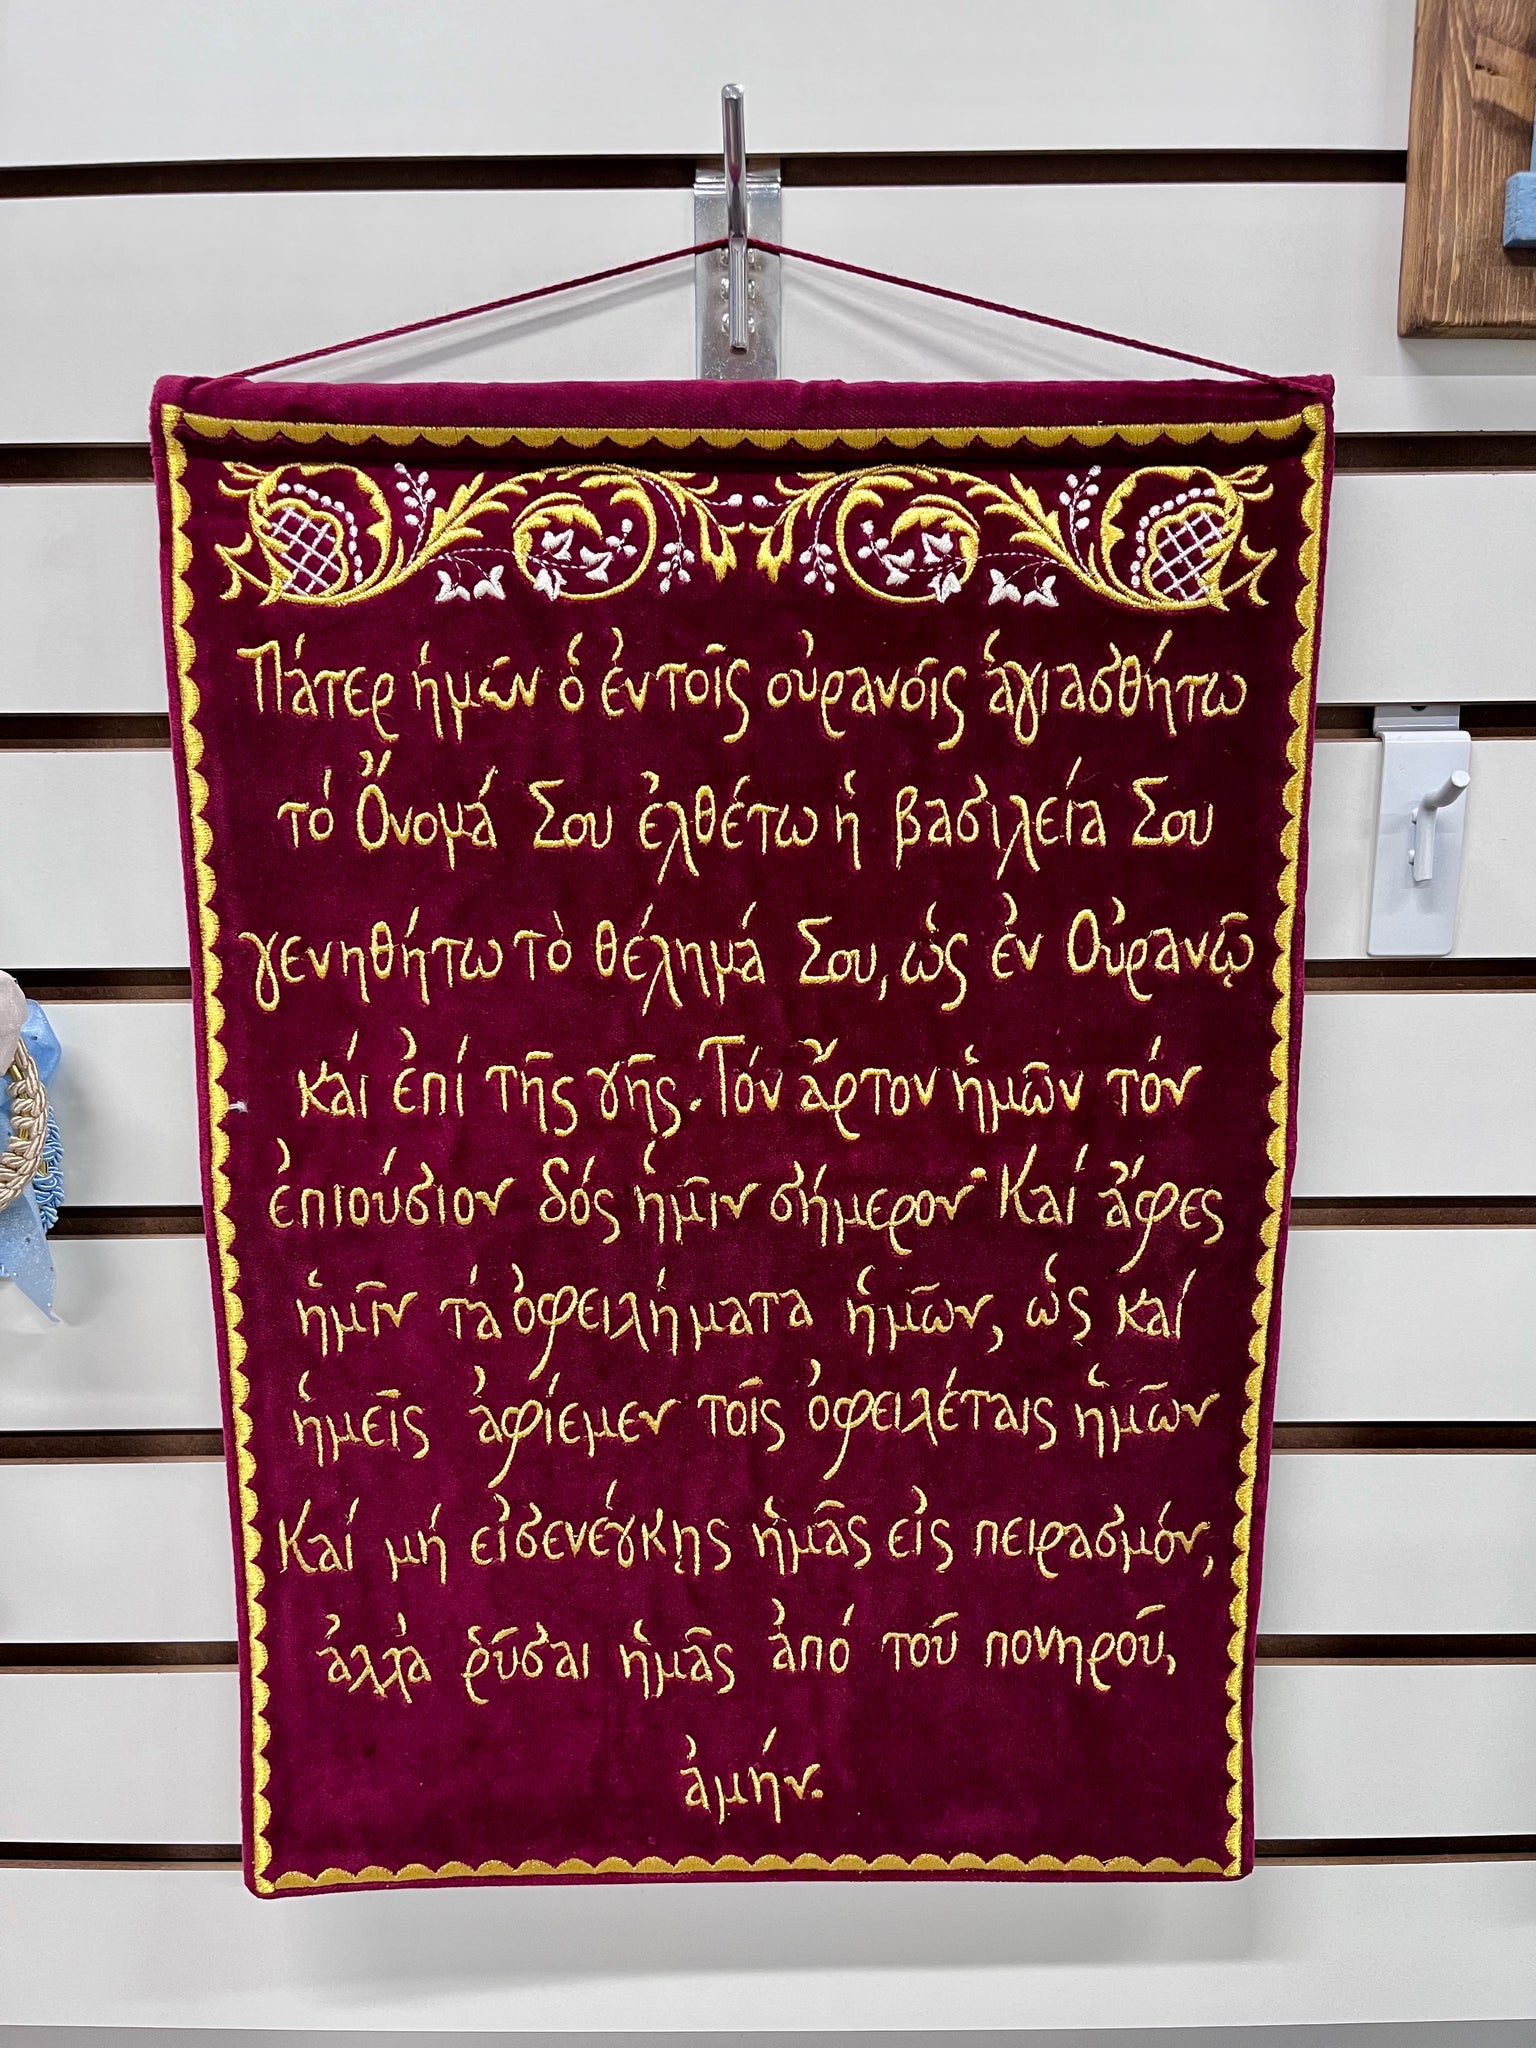 Πάτερ ἡμῶν ὁ ἐν τοῖς οὐρανόις ἁγιασθήτω
τό Ὄνομά Σου ἐλθέτω ἡ βασιλεία Σου
γενηθήτω τὸ θέλημά Σου, ὡς ἐν Οὐρανῷ
καί ἐπί τῆς γῆς. Τόν ἄρτον ἡμῶν τόν
ἐπιούσιον δός ἡμῖν σήμερον· Καί ἄφες
ἡμῖν τά ὀφειλήματα ἡμῶν, ὡς καί
ἡμεῖς ἀφίεμεν τοῖς ὀφειλέταις ἡμῶν
Καί μή εἰσενέγκῃς ἡμᾶς εἰς πειρασμόν,
ἀλλἀ ῥῦσαι ἡμᾶς ἀπό τοῦ πονηροῦ,
ἀμήν.